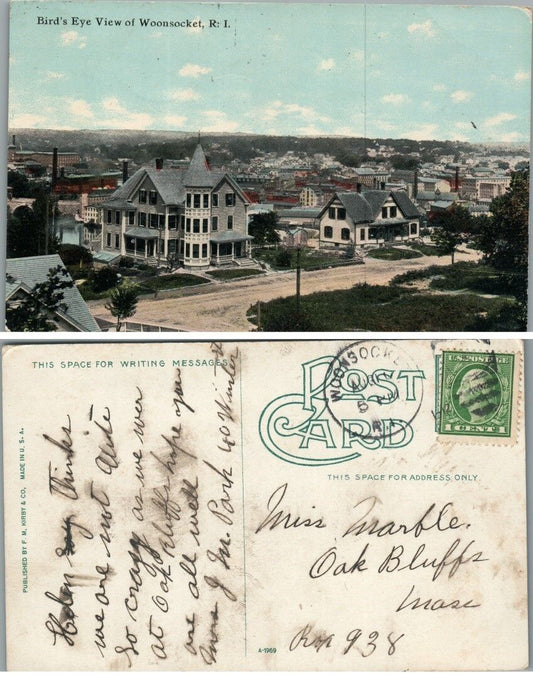 Bird's Eye View of Woonsocket, R. I.
THIS SPACE FOR WRITING MESSAGES
POST
CARD
THIS SPACE FOR ADDRESS ONLY.
WOONSOCKET
AUG
5 PM
R.I.
U.S. POSTAGE
1 CENT 1
PUBLISHED BY F. M. KIRBY & CO. MADE IN U. S. A.
Helen thinks
we are not quite
so crazy as we wer
at Oak Bluffs hope you
are all well
J M. Park 40 Winter St
Miss Marble.
Oak Bluffs
Mass
Box 938
A-1969